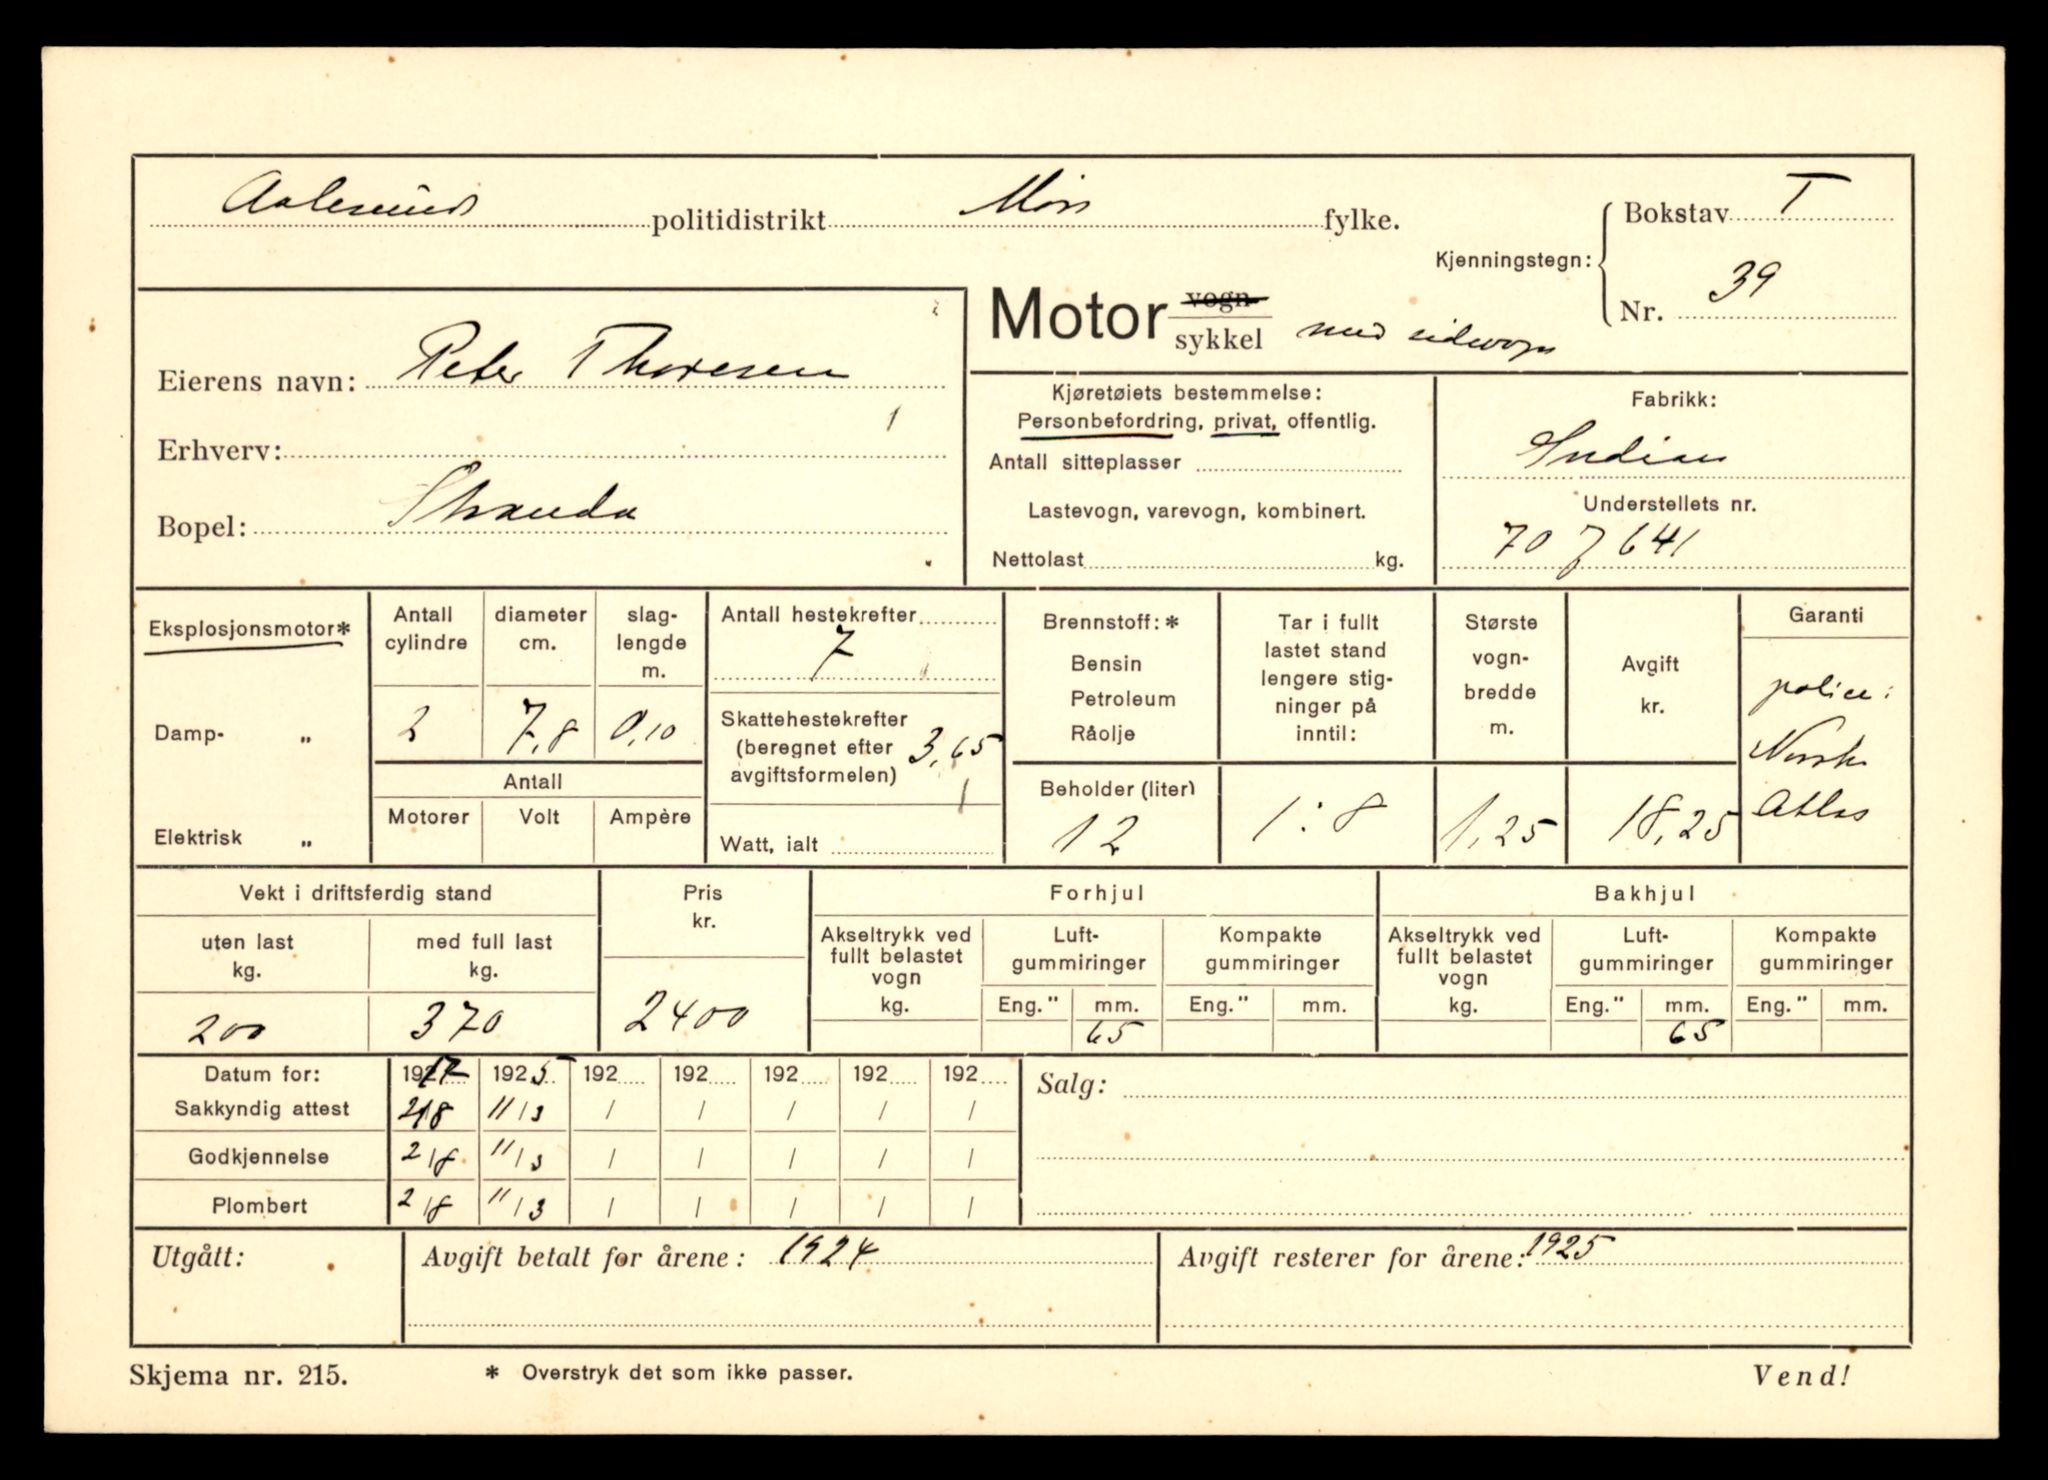 Aalesund politidistrikt Møre fylke.
Kjenningstegn: Bokstav T
Nr. 39
Motor vogn
sykkel med sidevogn
Eierens navn: Peter Thoresen
Erhverv:
Bopel: Stranda
Kjøretøiets bestemmelse:
Personbefordring, privat, offentlig.
Antall sitteplasser
Lastevogn, varevogn, kombinert.
Nettolast kg.
Fabrikk:
Indian
Understellets nr.
70 J 641
Eksplosjonsmotor*
Damp- "
Elektrisk "
Antall cylindre
2
diameter cm.
7,8
slag-
lengde
m.
0,10
Antall
Motorer Volt Ampère
Antall hestekrefter
7
Skattehestekrefter
(beregnet efter
avgiftsformelen) 3,65
Watt, ialt
Brennstoff: *
Bensin
Petroleum
Råolje
Beholder (liter)
12
Tar i fullt
lastet stand
lengere stig-
ninger på
inntil:
1:8
Største
vogn-
bredde
m.
1,25
Avgift
kr.
18,25
Garanti
police:
Norske
Atlas
Vekt i driftsferdig stand
uten last
kg.
200
med full last
kg.
370
Pris
kr.
2400
Forhjul
Akseltrykk ved
fullt belastet
vogn
kg.
Luft-
gummiringer
Eng." mm.
65
Kompakte
gummiringer
Eng." mm.
Bakhjul
Akseltrykk ved
fullt belastet
vogn
kg.
Luft-
gummiringer
Eng." mm.
65
Kompakte
gummiringer
Eng." mm.
Datum for: 1917 1925 192 192 192 192 192
Sakkyndig attest 2/8 11/3 / / / / /
Godkjennelse 2/8 11/3 / / / / /
Plombert 2/8 11/3 / / / / /
Salg:
Utgått:
Avgift betalt for årene: 1924
Avgift resterer for årene: 1925
Skjema nr. 215.
* Overstryk det som ikke passer.
Vend!